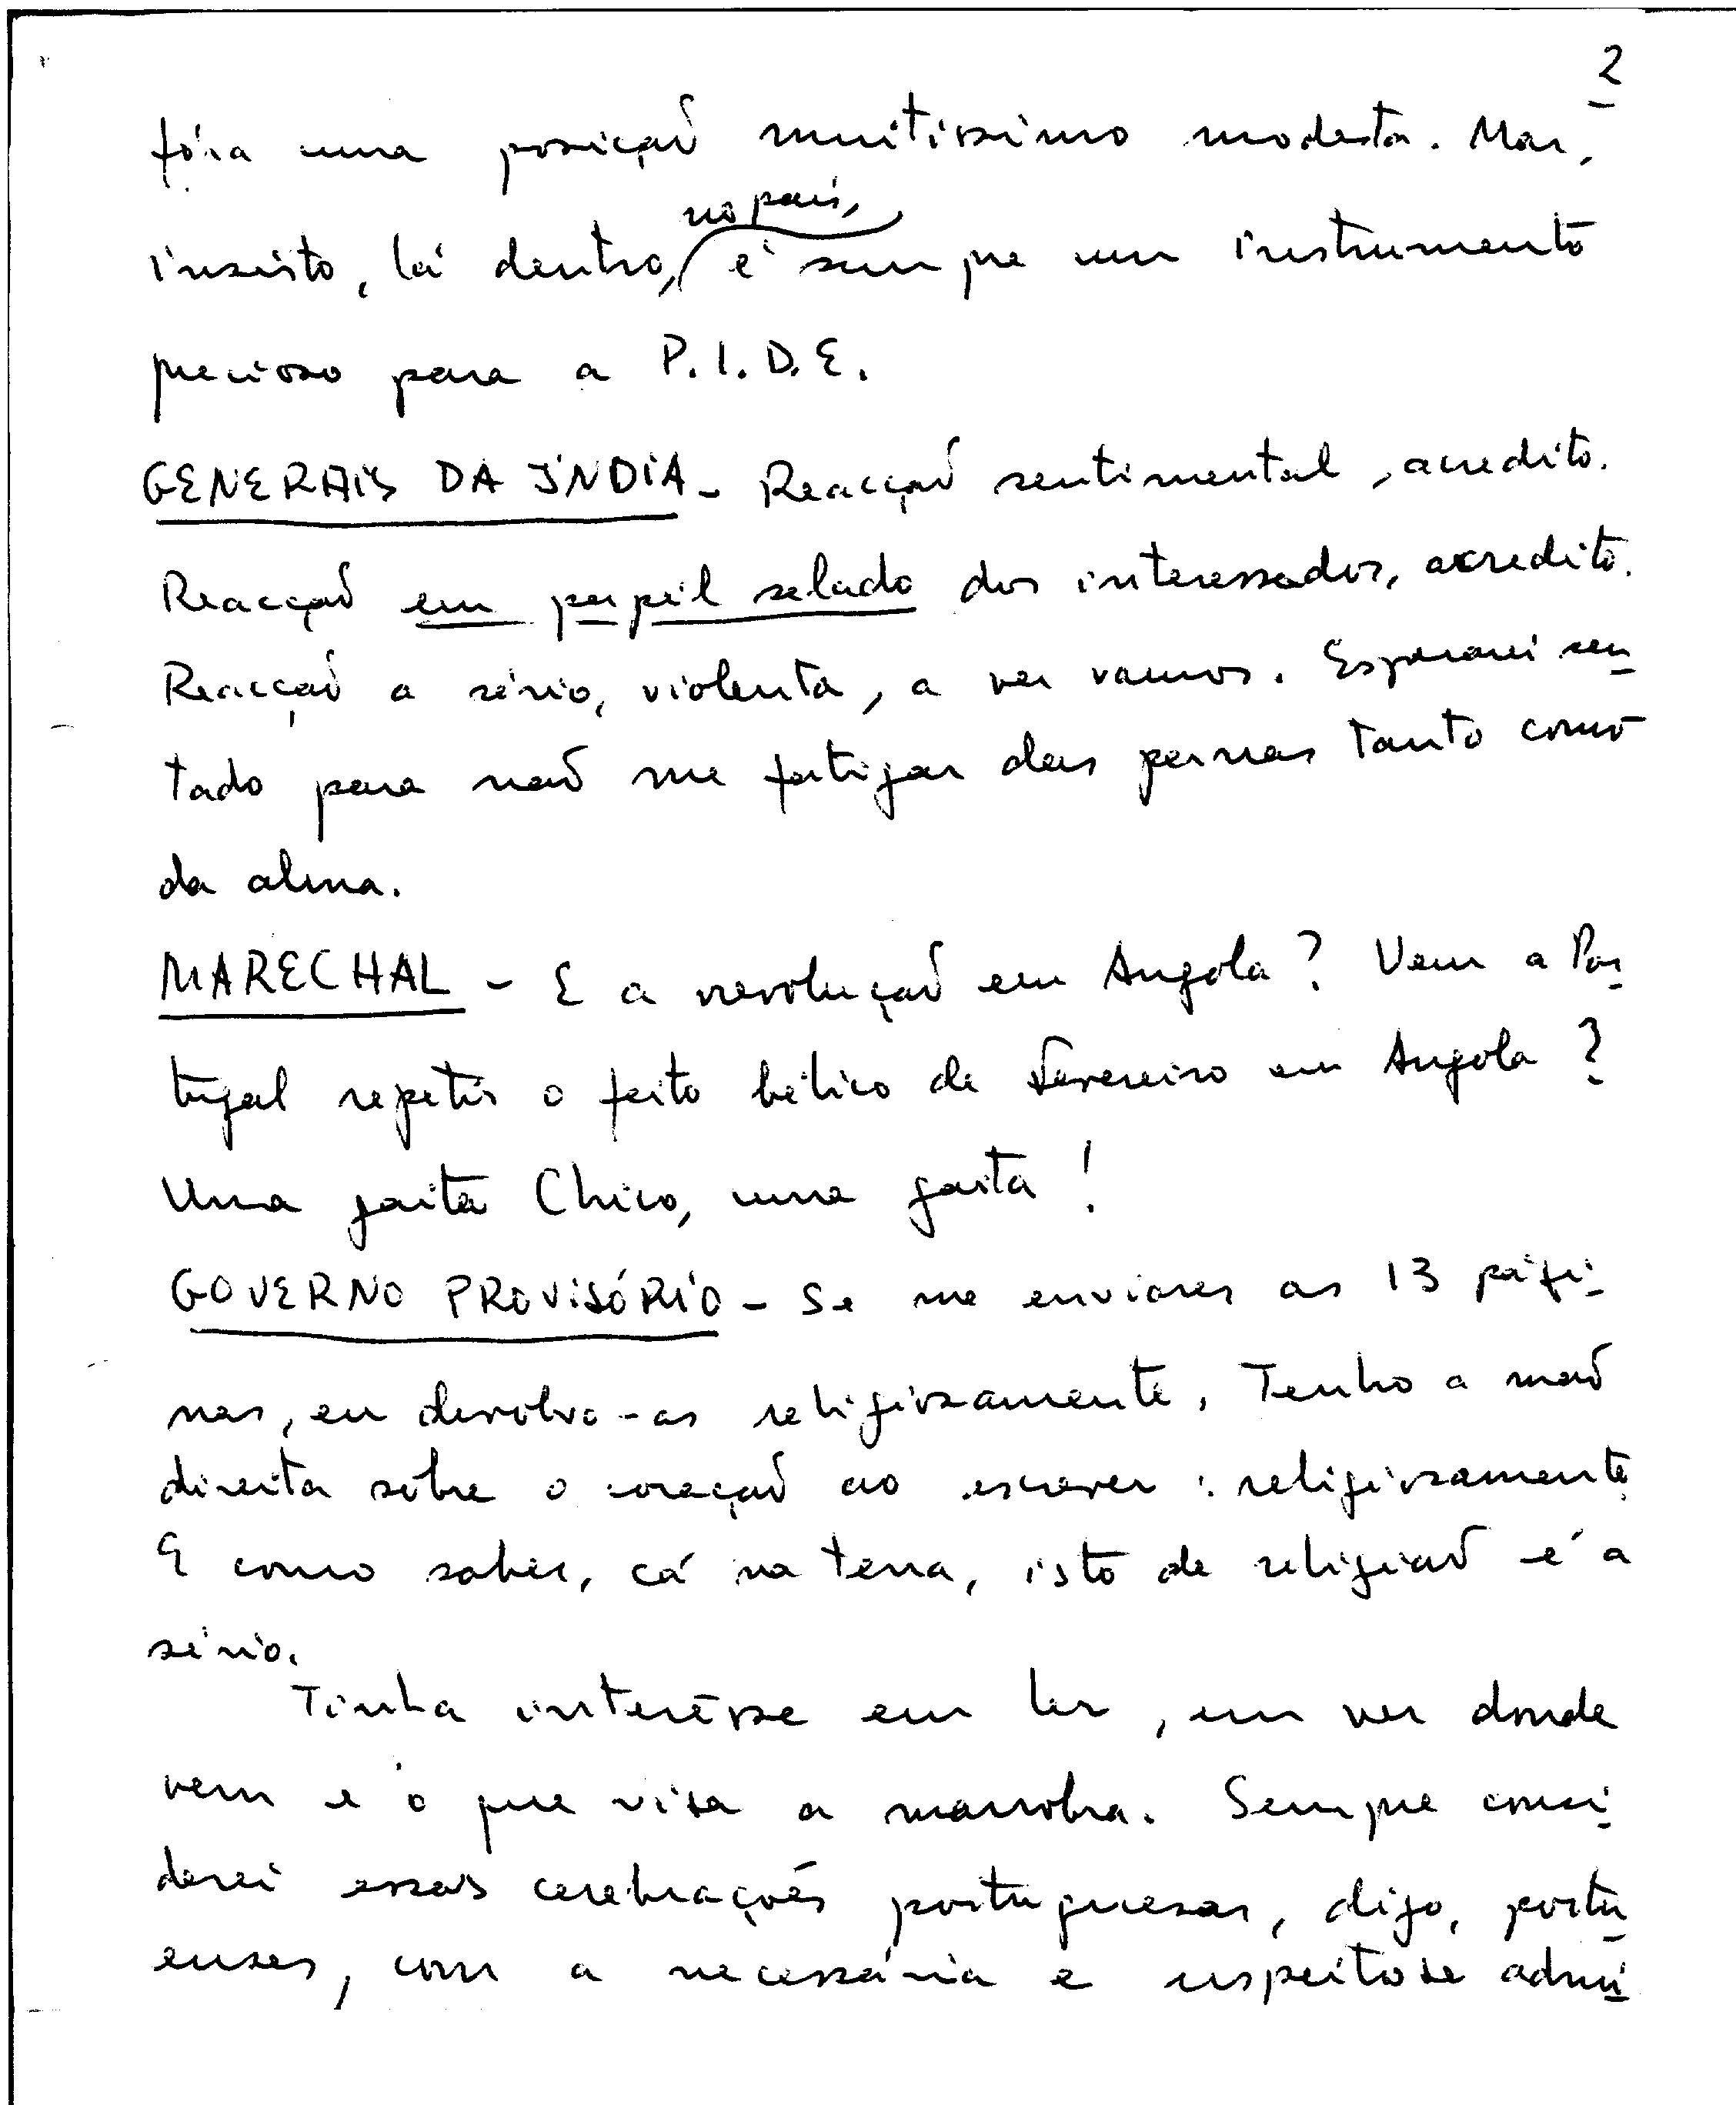 2
fóra uma posição muitissimo modesta. Mas,
no país,
insisto, lá dentro, é sempre um instrumento
precioso para a P.I.D.E.
GENERAIS DA ÍNDIA - Reacção sentimental, acredito.
Reacção em papel selado dos interessados, acredito.
Reacção a sério, violenta, a ver vamos. Esperarei sen
tado para não me fatigar das pernas tanto como
da alma.
MARECHAL - E a revolução em Angola? Vem a Por
tugal repetir o feito bélico de Fevereiro em Angola?
Uma gaita Chico, uma gaita!
GOVERNO PROVISÓRIO - Se me enviares as 13 pági-
nas, eu devolvo-as religiosamente. Tenho a mão
direita sôbre o coração ao escrever: religiosamente.
E como sabes, cá na terra, isto de religião é a
sério.
Tinha interêsse em ler, em ver donde
vem e o que visa a manobra. Sempre consi
derei essas cerebrações portuguesas, digo, portu
enses, com a necessária e respeitosa admi